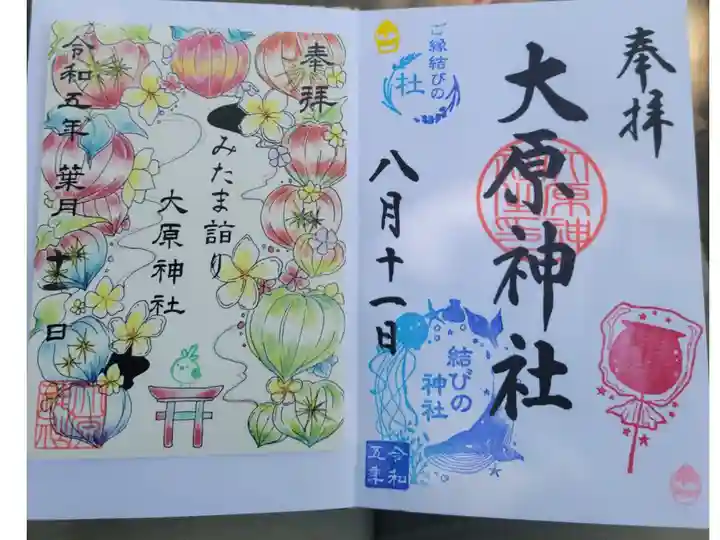 奉拝
大原神社
八月十一日
ご縁結びの
社
結びの
神社
令和
五年
奉拝
みたま詣り
大原神社
令和五年 葉月 十一日